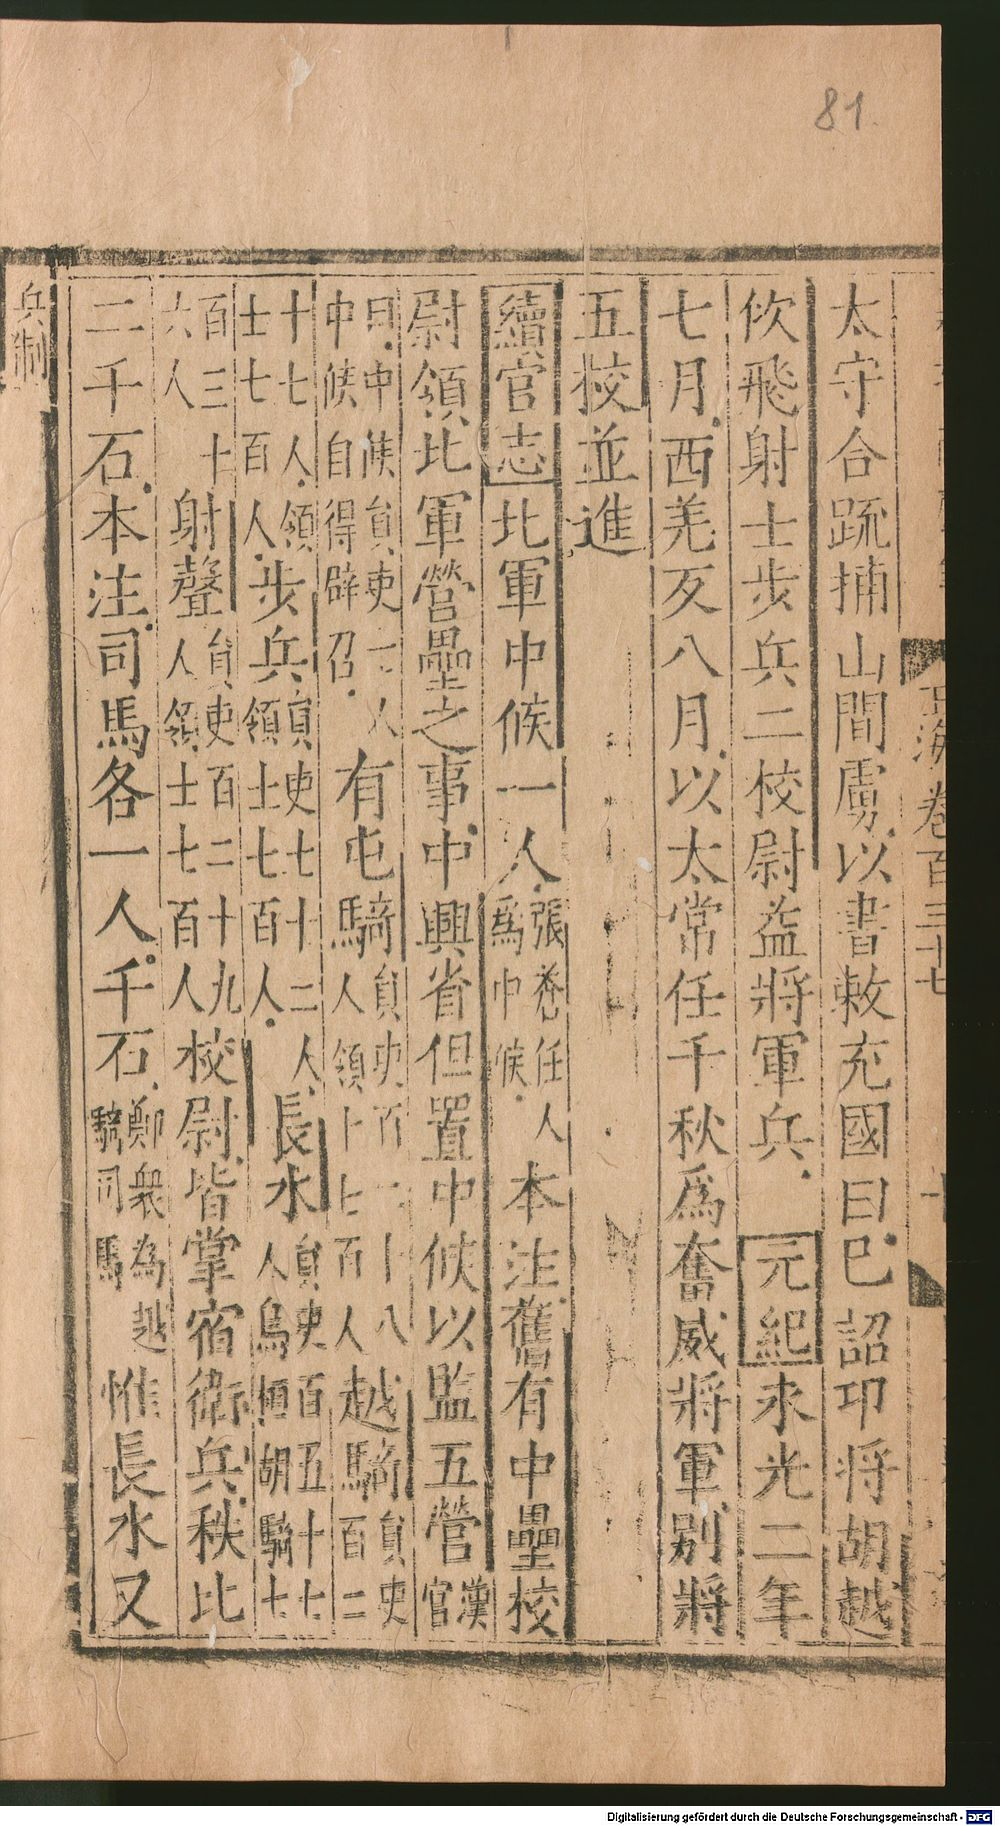 81.
玉海卷百三十七
太守合䟽捕山間虜以書敕充國曰巳詔卬将胡越
佽飛射士步兵二校尉益將軍兵 元紀永光二年
七月西羌反八月以太常任千秋爲奮威將軍别將
五校並進
續官志北軍中候一人張奐任人爲中候本注舊有中壘校
尉領北軍營壘之事中興省但置中候以監五營漢官
曰中候員吏一人中候自得辟召有屯騎員吏百二十八人領士七百人越騎員吏百二
十七人領士七百人步兵員吏七十二人領士七百人長水員吏百五十七人烏桓胡騎七
百三十六人射聲員吏百二十九人領士七百人校尉皆掌宿衛兵秩比
二千石本注司馬各一人千石鄭衆為越騎司馬惟長水又
兵制
Digitalisierung gefördert durch die Deutsche Forschungsgemeinschaft - DFG